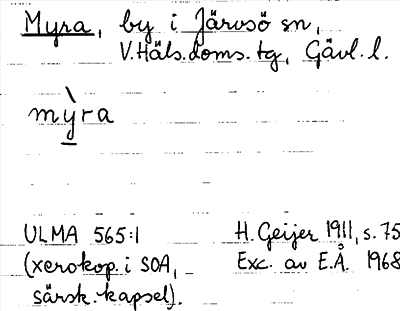 Myra, by i Järvsö sn,
V.Häls.doms.tg, Gävl.l.
mỳra
ULMA 565:1 H. Geijer 1911, s. 75
(xerokop. i SOA, Exc. av E.Å. 1968
särsk. kapsel).